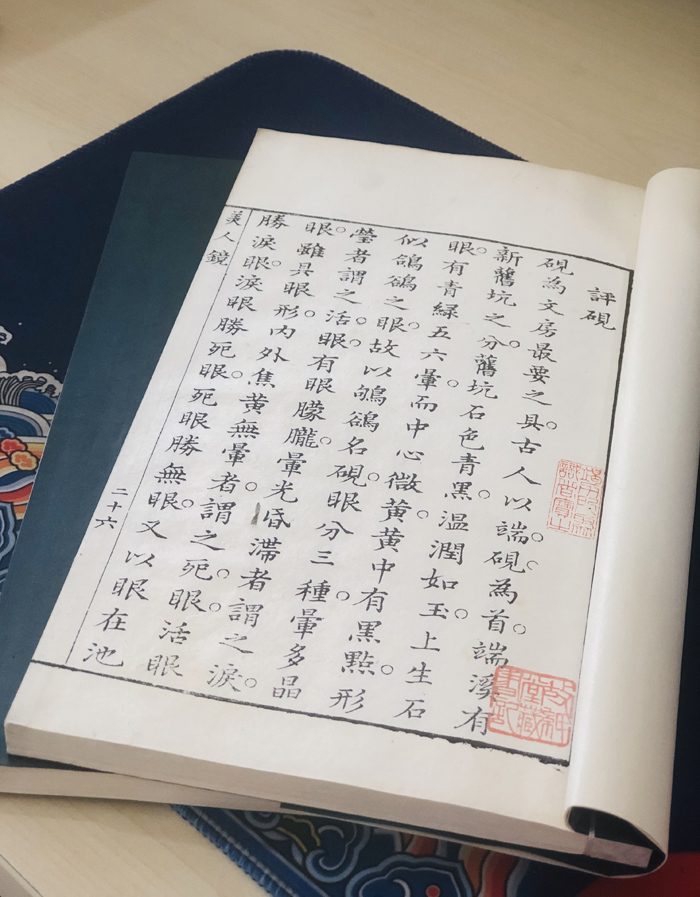 評硯
硯為文房最要之具。古人以端硯為首。端溪有
新舊坑之分。舊坑石色青黑。温潤如玉。上生石
眼。有青綠五六暈。而中心微黃。黃中有黑點。形
似鴝鵒之眼。故以鴝鵒名硯。眼分三種。暈多晶
瑩者謂之活眼。有眼朦朧。暈光昏滯者謂之淚
眼。雖具眼形。內外焦黃無暈者。謂之死眼。活眼
勝淚眼。淚眼勝死眼。死眼勝無眼。又以眼在池
美人鏡
二十六